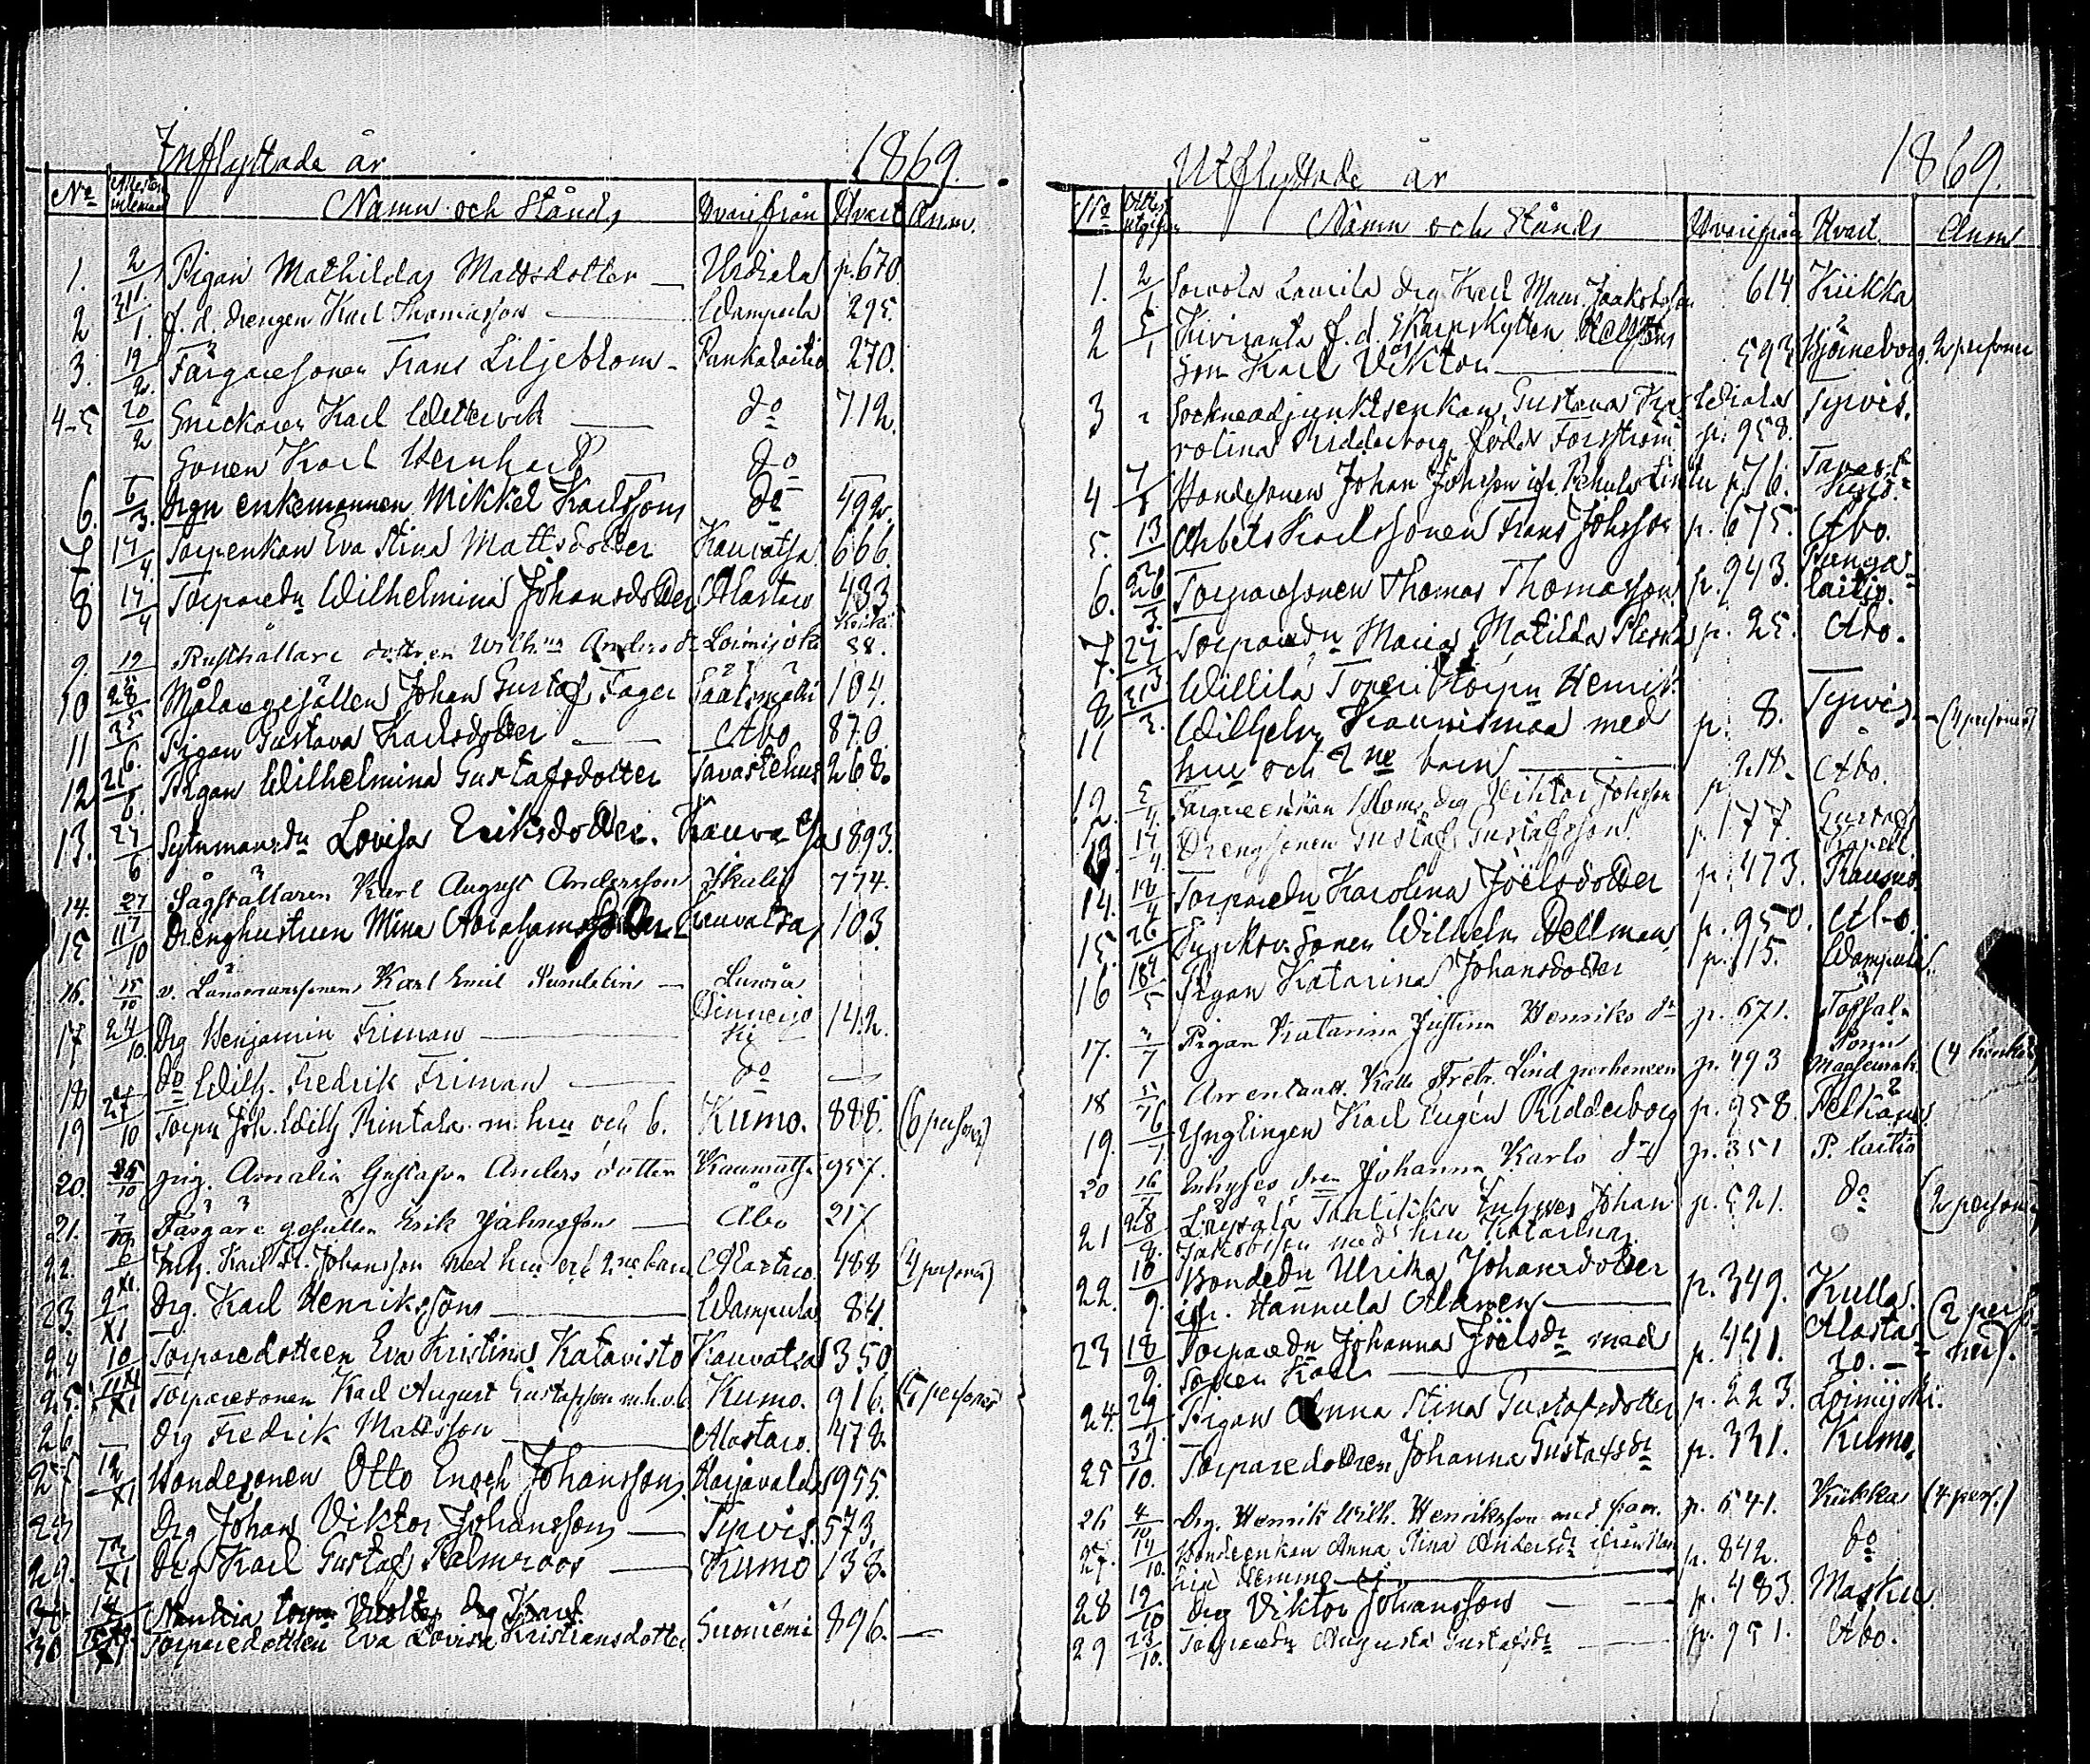 Inflyttade år 1869.
No Attesten inlemnad Namn och Stånd, Hvarifrån Hvart Anm.
1. 2/1 Pigan Mathilda Mattsdotter — Urdiala p. 670.
2 f. d. drengen Karl Thomasson — Wampula 295.
3. 19/2. Färgaresonen Frans Liljeblom - Punkalaitio 270.
4-5 20/2 Snickaren Karl Wettervik — do 712.
Sonen Karl Bernhard do
6. 6/3. Drgn enkemannen Mikkel Karlsson do 492.
7 17/4. Torpenkan Eva Stina Mattsdotter Kauvatsa 666.
8 17/4 Torparedn Wilhelmina Johansdotter Alastaro 483
9. 19 Rusthållare dottren Wilhna Anders dr Loimijoki 88.
10 28/5 Målaregesällen Johan Gustaf Fager Säkkmäki 104.
11 3/6. Pigan Gustava Karlsdotter — Åbo 870.
12 21/6. Pigan Wilhelmina Gustafsdotter Tavastehus 268.
13. 27/6 Sytnmansdn Lovisa Eriksdotter. Kauvatsa 893.
14. 27 Sågställaren Karl August Andersson Ikalis 774.
15 11/10 Drenghustrun Mina Abrahamsdotter Kauvatsa 103
16. 15/10 v. Länsmanssonen Karl Emil Sundelin — Lunåa
17 24/10. Drg Benjamin Friman — 142.
18 do Wilh. Fredrik Friman — do —
19 27/10 Torpn Joh. Wilh Rintala m. hu och b. Kumo. 888. (6 personer)
20. 25/10 pig. Amalia Gustafva Anders dotter Kauvatsa 957.
21. 7/10 Färgare gesällen Erik Johnsson — Åbo 217
22. 6/XI Inh. Karl Fr. Johansson med hu och 2ne barn Alastaro. 488 (4 personer)
23. 9/XI Drg. Karl Henriksson — Wampula 84.
24 10 Torparedottren Eva Kristina Katavisto Kauvatsa 350
25. 11/XI Torparesonen Karl August Gustafsson m. h. o. b. Kumo. 916. (5 personer
26 — Drg Fredrik Mattsson — Alastaro. 478.
27. 12/XI Bondesonen Otto Enoch Johansson Harjavalda 955.
28 Drg Johan Viktor Johansson — Tyrvis. 573.
29. 12/XI Drg Karl Gustaf Palmroos — Kumo 133.
Torparedottren Eva Lovisa Kristiansdotter Suoniemi 896. —
Utflyttade år 1869.
No Attest utgifven Namn och Stånd Hvarifrån Hvart. Anm
1. 2/1 Sorvola Laurila drg Karl Maur. Jaakobsson 614 Kiikka
2 5/1 Kiviranta f. d. Skarpskytten Hellsten
Son Karl Viktor — 593 Björneborg. 2 personer
3 Sockneadjunktsenkan Gustava Ka- Wiala Tyrvis.
rolina Ridderborg född Forsström p. 958.
4 7/1 Bondesonen Johan Johsson p. 76.
5. 13 Arbets Karlssonen Frans Johsson p. 675. Åbo.
6. 26/3. Torparesonen Thomas Thomasson p. 943. Punga-
laitio.
7. 27/3 Torparedn Maria Matilda p. 25. Åbo.
8, 31/3. Willilä Toneri torpn Henrik
11 Wilhelm Kaunismaa med p. 8. Tyrvis — (4 personer)
hu och 2ne barn —
12. 5/4. Färgareenkan drg Viktor Johsson p 218. Åbo.
13 17/4. Drengsonen Gustaf Gustafsson p. 177. Gustafs
Kapell.
14. 19/4 Torparedn Karolina Joelsdotter p. 473. Raumo
15. 26 Inspektor sonen Wilhelm Dellman p. 950. Åbo.
16 18/5 Pigan Katarina Johansdotter p. 115. Wampula.
17. 2/7 Pigan Katarina Justina Henriks dr p. 671. Tofsala
18 5 Arrentator. Kalle Fredr. Lind perheineen p. 493 Maaseurak. (4 henkeä)
19. 16/7. Ynglingen Karl Eugen Ridderborg p. 958. Pelkäne.
20 16 Inhyses dren Johanna Karls dr p. 351 P. laitio
21 28/8. Taalikka Inhyses Johan p. 521. do (2 personer)
Jakobsson med hu Katarina.
22. 10/9. Bondedn Ulrika Johansdotter
ifr. Hannula Alanen — p. 349. Kulla.
23 18/9. Torparedn Johanna Joelsdr med p. 441. Alasta- (2 perso-
Sonen Karl — ro. — ner).
24. 29/9. Pigan Anna Stina Gustafsdotter p. 223. Loimijoki.
25 31/10. Torparedottren Johanna Gustafsdr p. 331. Kumo,
26 4/10 Drg. Henrik Wilh. Henriksson med fam. p. 641. Kiikka (4 pers.)
27. 14/10. Bondeenkan Anna Stina Andersdr ifrån p. 842. do
Hemmo —
28 19/10 Drg Viktor Johansson — p. 483. Masku
29 23/10. Torparedn Augusta Gustafsdr — p. 951. Åbo.